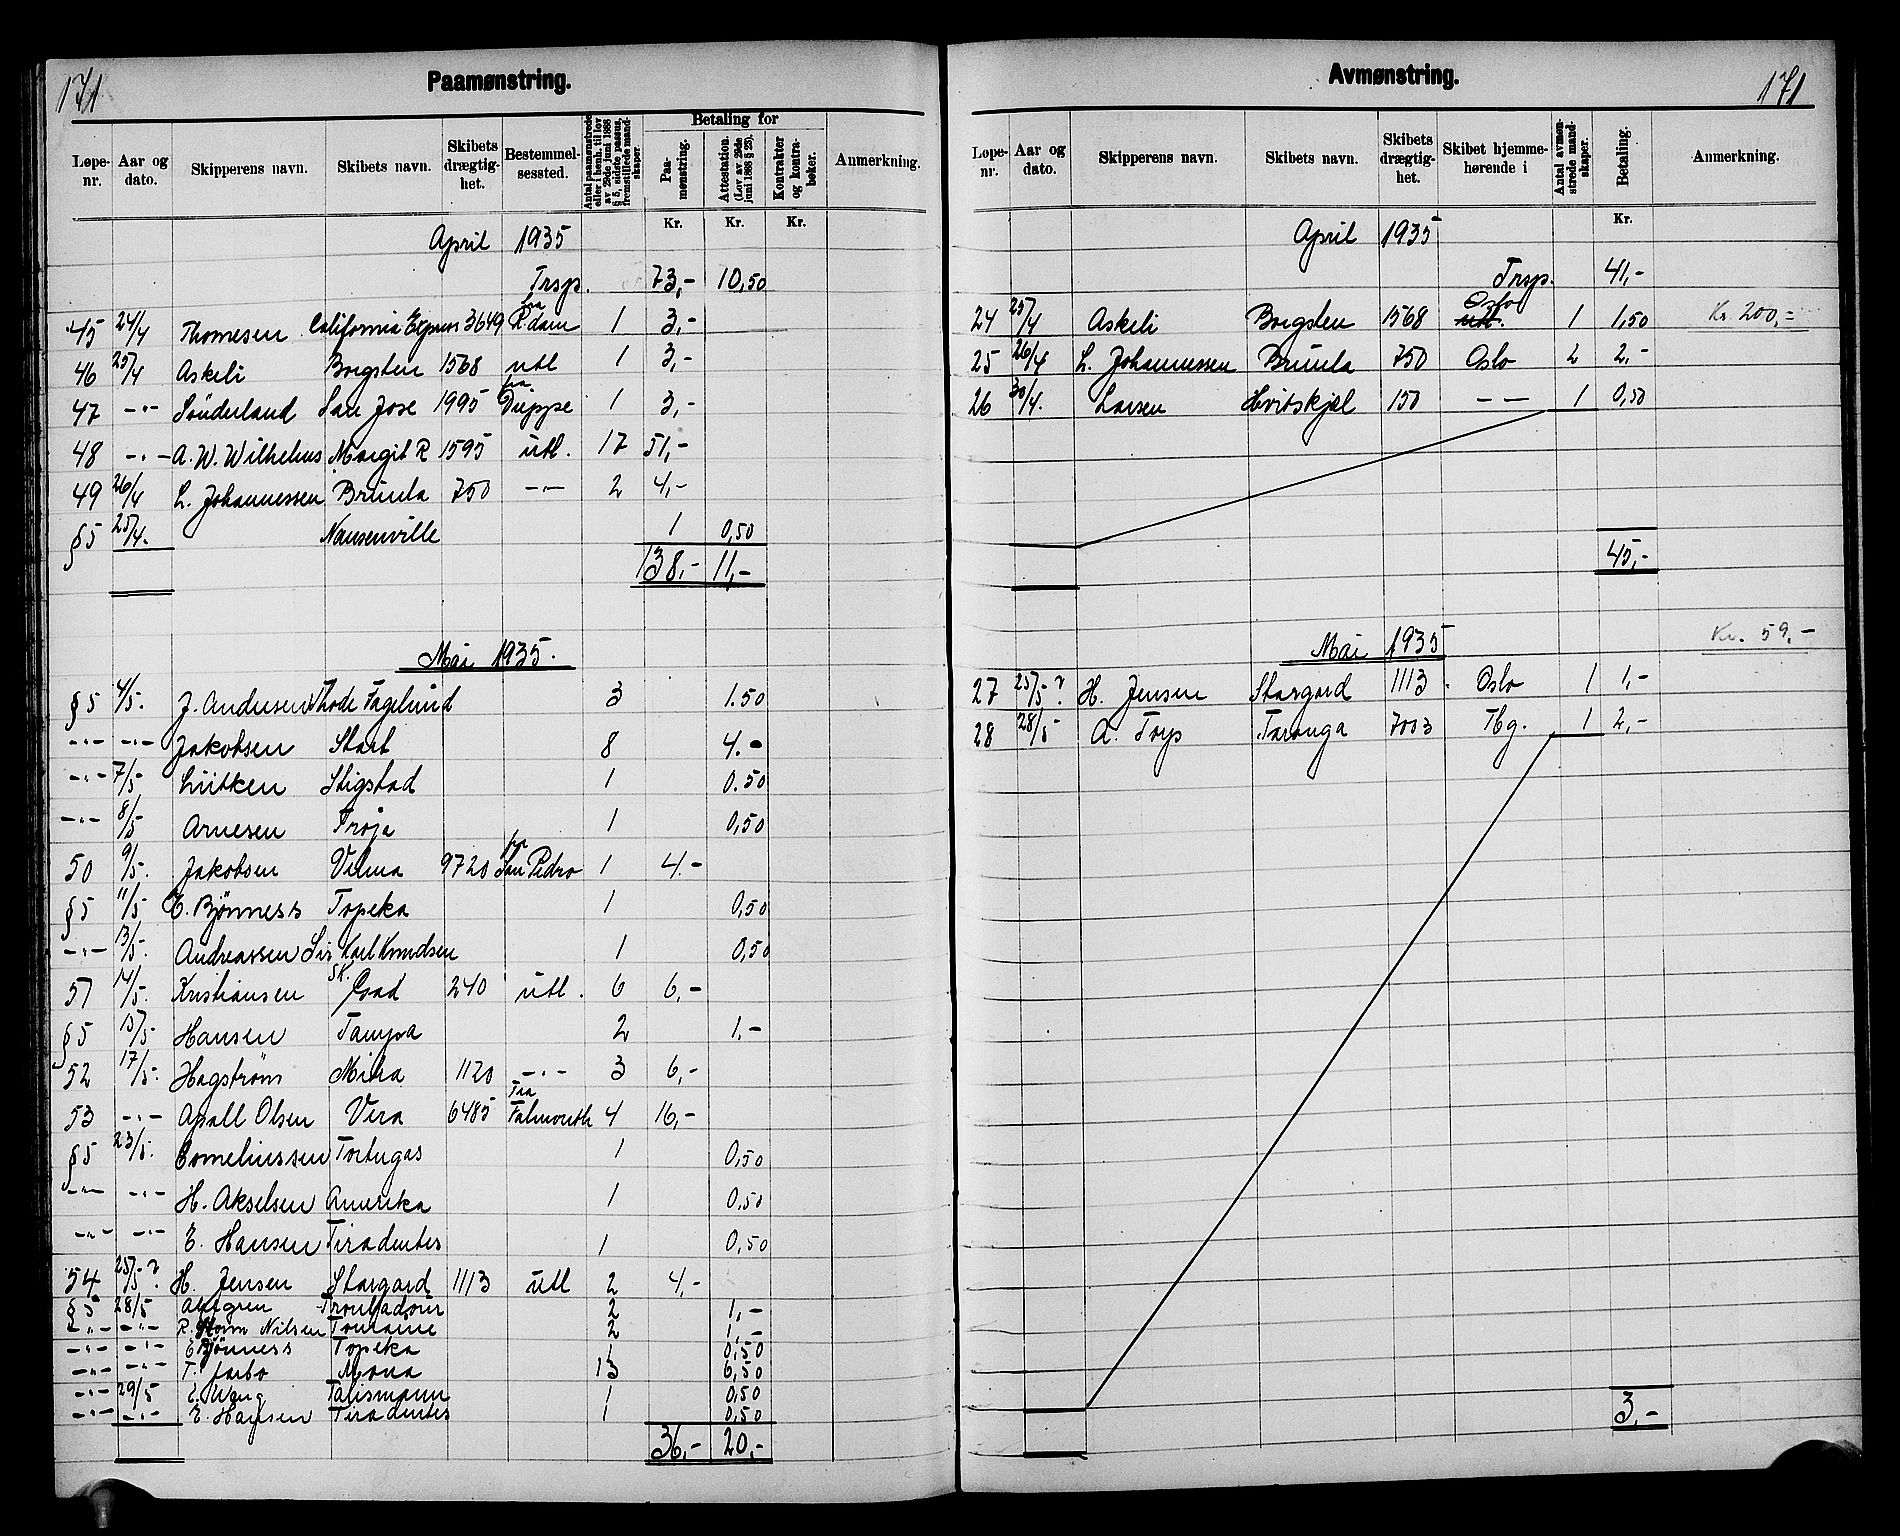 171
Paamønstring.
Løpe-nr. Aar og dato. Skipperens navn. Skibets navn. Skibets drægtig-het. Bestemmel-sessted. Antal paamønstrede eller i henh. til lov av 29de juni 1888 § 5, sidste passus, fremstillede mand-skaper Betaling for Paa-mønstring. Attestation. (Lov av 29de juni 1888 § 23). Kontrakter og kontra-bøker. Anmerkning.
Kr. Kr. Kr.
April 1935
Trsp. 73,- 10,50
45 24/4 Thomesen California Express 3649 fra R.dam 1 3,-
46 25/4 Askeli Borgsten 1568 utl 1 3,-
47 -"- Sönderland San Jose 1995 fra Dieppe 1 3,-
48 -"- A. W. Wilhelms Margit R 1595 utl. 17 51,-
49 26/4 L. Johannessen Brunla 750 -"- 2 4,-
§5 25/4. Nansenville 1 0,50
138,- 11,-
Mai 1935.
§5 4/5. J. Andersen Thode Fagelund 3 1.50
-"- -"- Jakobsen Start 8 4.-
-"- 7/5 Lütken Stigstad 1 0.50
-"- 8/5 Arnesen Troja 1 0,50
50 9/5. Jakobsen Velma 9720 fra San Pedro 1 4.-
§5 11/5 E. Bjönness Topeka 1 0,50
-"- 13/5. Andreassen Sir Karl Knudsen 1 0,50
51 14/5. Kristiansen SK. Gsad 240 utl. 6 6,-
§5 15/5- Hansen Tampa 2 1.-
52 17/5. Hagström Mira 1120 -"- 3 6,-
53 -"- Apall Olsen Vera 6485 Fra Falmouth 4 16,-
§5 23/5. Corneliussen Tortugas 1 0,50
-"- -"- H. Akselsen Amerika 1 0,50
-"- -"- E. Hansen Tiradentes 1 0,50
54 25/5-? H. Jensen Stargard 1113 utl 2 4,-
§5 28/5 Ahlgren Troubadour 2 1,-
-"- -"- R. Storm Nilsen Touraine 2 1,-
-"- -"- E Bjönness Topeka 1 0,50
-"- -"- T. Jarbo Mona 13 6,50
-"- 29/5 E. Wang Talismann 1 0,50
-"- -"- E. Hansen Tiradentes 1 0,50
36,- 20,-
171
Avmønstring.
Løpe-nr. Aar og dato. Skipperens navn. Skibets navn. Skibets drægtig-het. Skibet hjemme-hørende i Antal avmøn-strede mand-skaper. Betaling. Anmerkning.
Kr.
April 1935
Trsp. 41,-
24 25/4 Askeli Borgsten 1568 utl. Oslo 1 1,50 Kr. 200,=
25 26/4 L. Johannessen Brunla 750 Oslo 2 2,-
26 30/4. Larsen Hvitskjæl 150 -- 1 0,50
45,-
Mai 1935 Kr. 59,-
27 25/5-? H. Jensen Stargard 1113 Oslo 1 1,-
28 28/5 A. Torp Taronga 7003 Tbg. 1 2,-
3,-